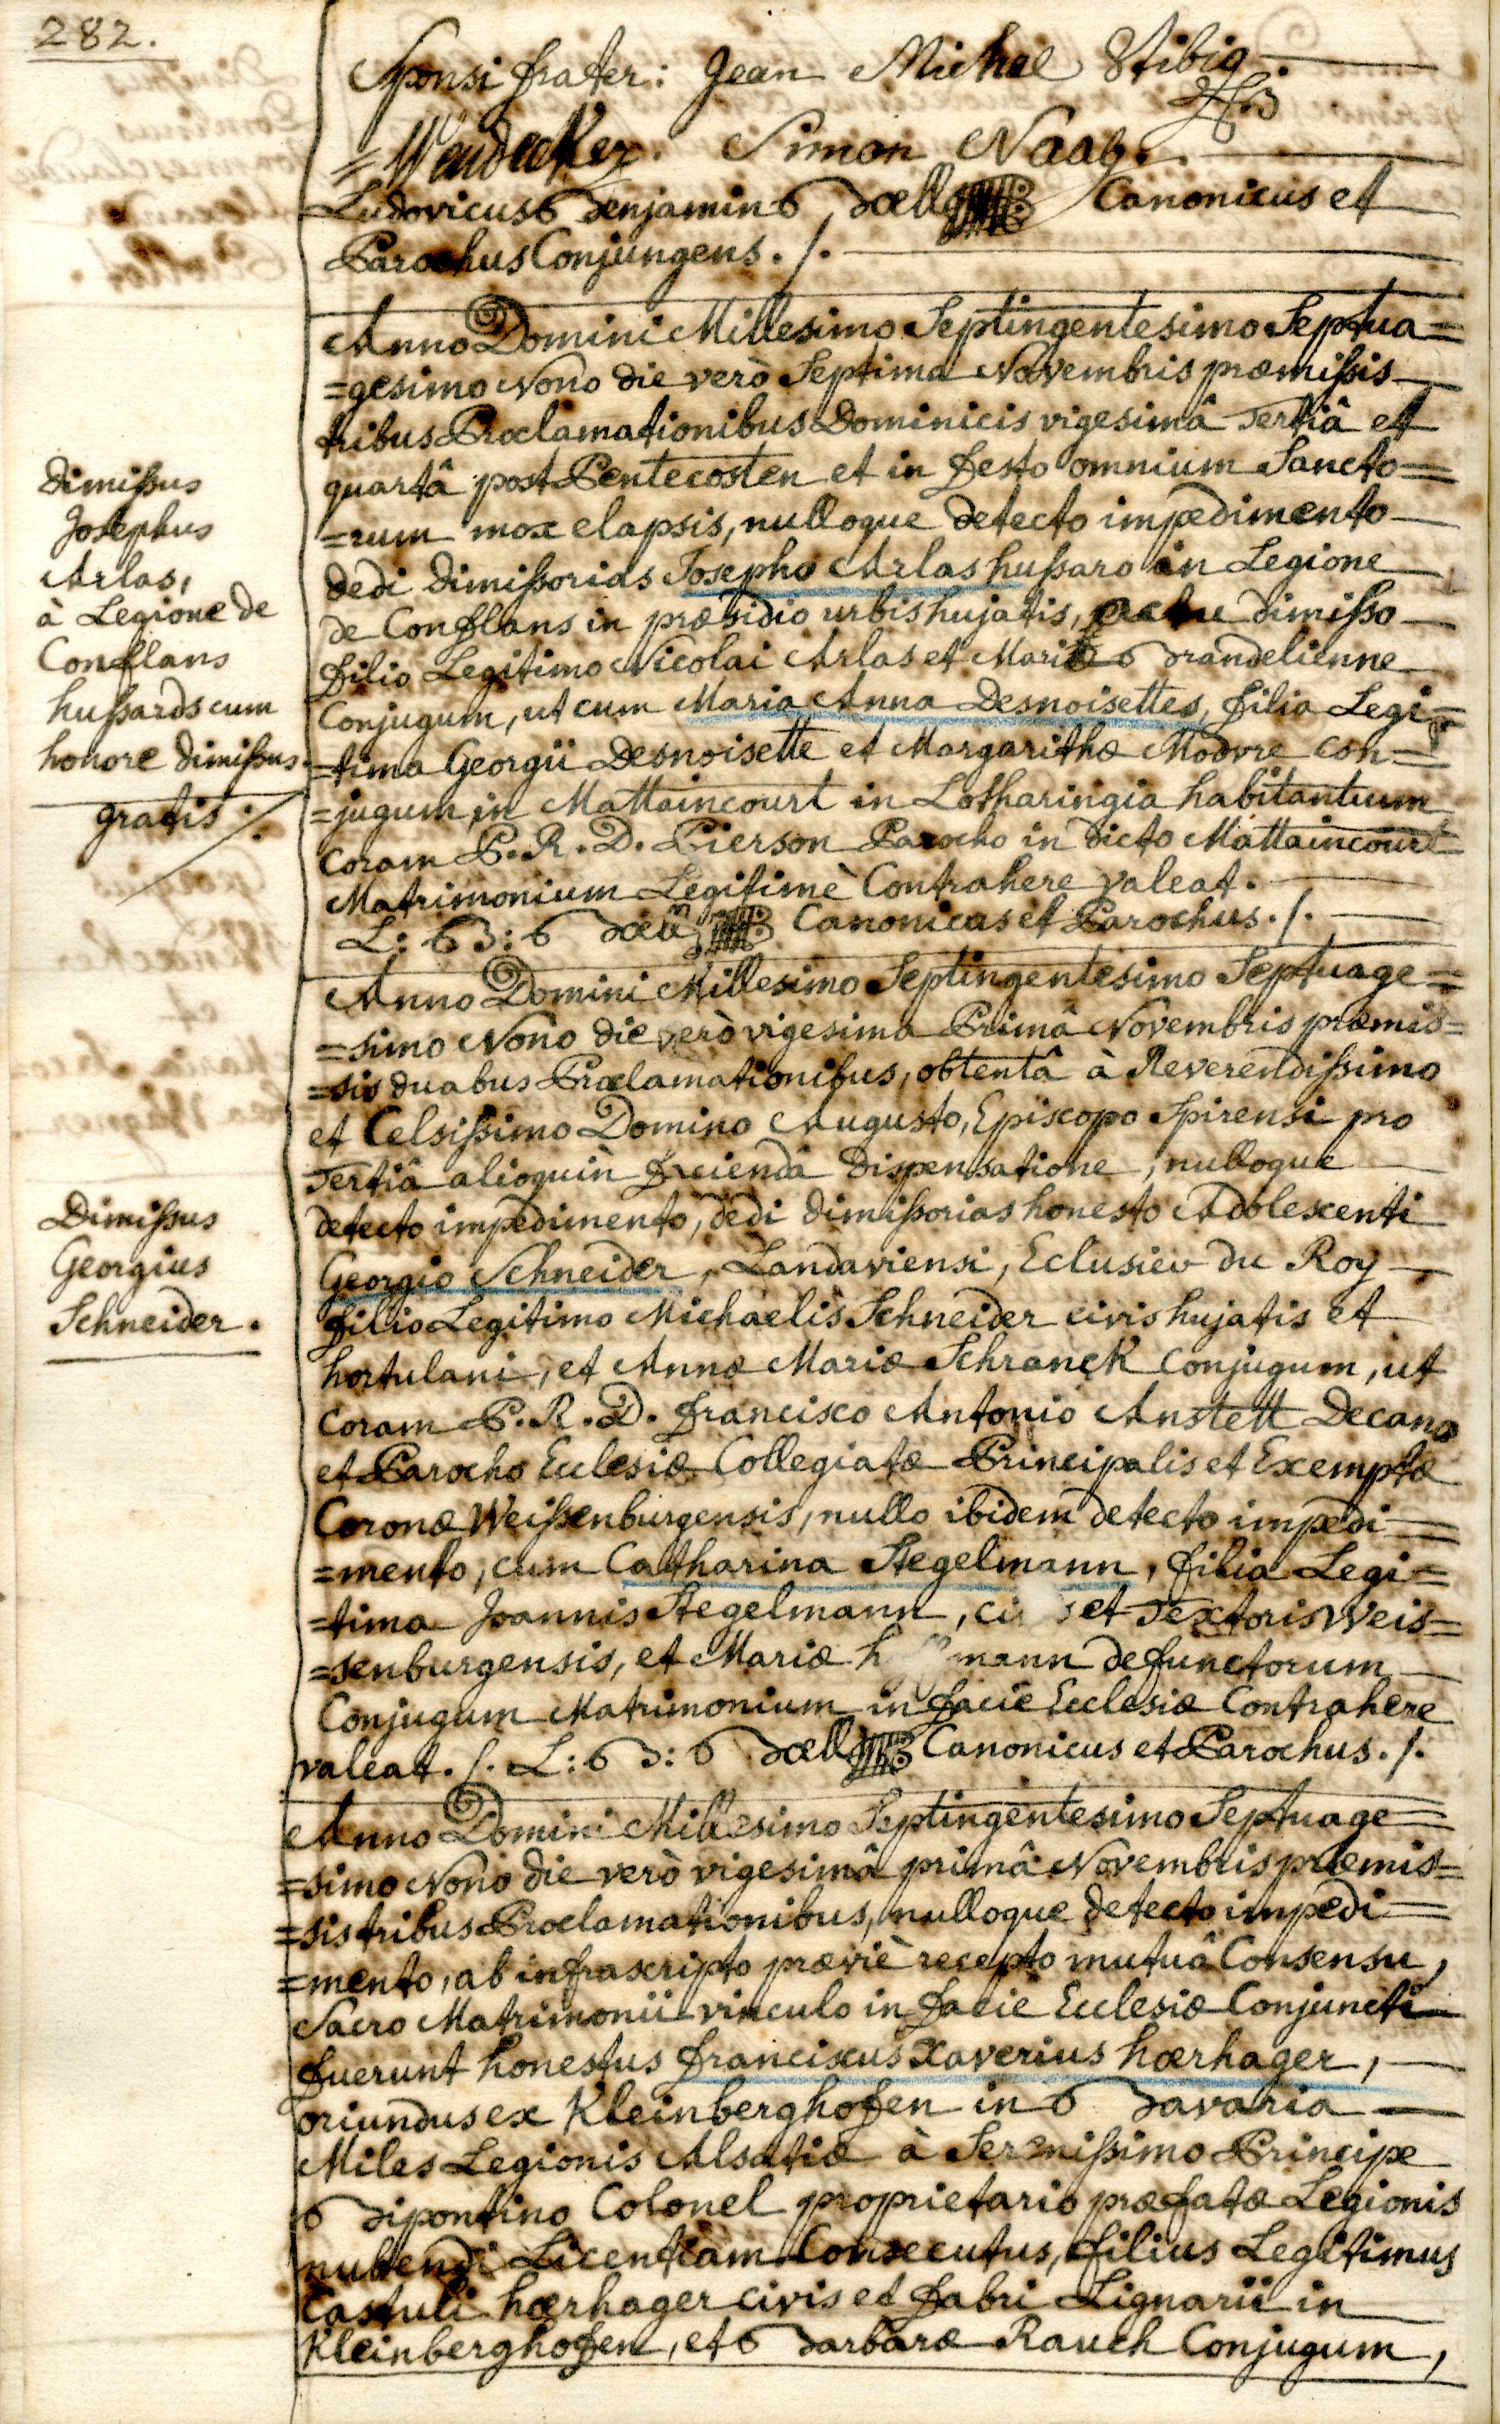 282.
Sponsi frater: Jean Michel Stibig.
= Wendecker. Simon Naab.
Ludovicus Benjamin Bœll Canonicus et
Parochus Conjungens./.
Anno Domini Millesimo Septingentesimo Septua=
=gesimo Nono die verò Septima Novembris præmissis
tribus Proclamationibus Dominicis vigesimâ Tertiâ et
quartâ post Pentecosten et in festo omnium Sancto=
=rum mox elapsis, nulloque detecto impedimento
dedi dimissorias Josepho Arlas hussaro in Legione
de Conflans in præsidio urbis hujatis, actu dimisso
filio Legitimo Nicolai Arlas et Mariæ Brandelienne
Conjugum, ut cum Maria Anna Desnoisettes, filia Legi=
=tima Georgii Desnoisette et Margarithæ Modvre con=
=jugum in Mattaincourt in Lotharingia habitantium
coram P. R. D. Pierson Parocho in dicto Mattaincourt
Matrimonium Legitimè Contrahere valeat.
L: B: Bœll Canonicus et Parochus./.
Dimissus
Josephus
Arlas,
à Legione de
Conflans
hussards cum
honore dimissus.
gratis./.
Anno Domini Millesimo Septingentesimo Septuage=
=simo Nono die verò vigesima Primâ Novembris præmis=
=sis duabus Proclamationibus, obtentâ à Reverendissimo
et Celsissimo Domino Augusto, Episcopo Spirensi pro
Tertiâ alioquin faciendâ dispensatione, nulloque
detecto impedimento, dedi dimissorias honesto Adolescenti
Georgio Schneider, Landaviensi, Eclusier du Roy
filio Legitimo Michaelis Schneider civis hujatis et
hortulani, et Annæ Mariæ Schranck conjugum, ut
coram P. R. D. francisco Antonio Anstett Decano
et Parocho Ecclesiæ Collegiatæ Principalis et Exemptæ
Coronæ Weissenburgensis, nullo ibidem detecto impedi=
=mento, cum Catharina Stegelmann, filia Legi=
=tima Joannis Stegelmann, et Textoris Weis=
=senburgensis, et Mariæ defunctorum
Conjugum Matrimonium in facie Ecclesiæ Contrahere
valeat./. L: B: Bœll Canonicus et Parochus./.
Dimissus
Georgius
Schneider.
Anno Domini Millesimo Septingentesimo Septuage=
=simo Nono die verò vigesimâ primâ Novembris præmis=
=sis tribus Proclamationibus, nulloque detecto impedi=
=mento, ab infrascripto præviè recepto mutuâ Consensu,
Sacro Matrimonii vinculo in facie Ecclesiæ Conjuncti
fuerunt honestus franciscus Xaverius hœrhager,
oriundus ex Kleinberghofen in Bavaria
Miles Legionis Alsatiæ à Serenissimo Principe
Bipontino Colonel proprietario præfatæ Legionis
nubendi Licentiam Consecutus, filius Legitimus
Castuli hœrhager civis et fabri Lignarii in
Kleinberghofen, et Barbaræ Rauch Conjugum,